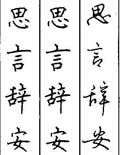 思言辞安
思言辞安
思言辞安